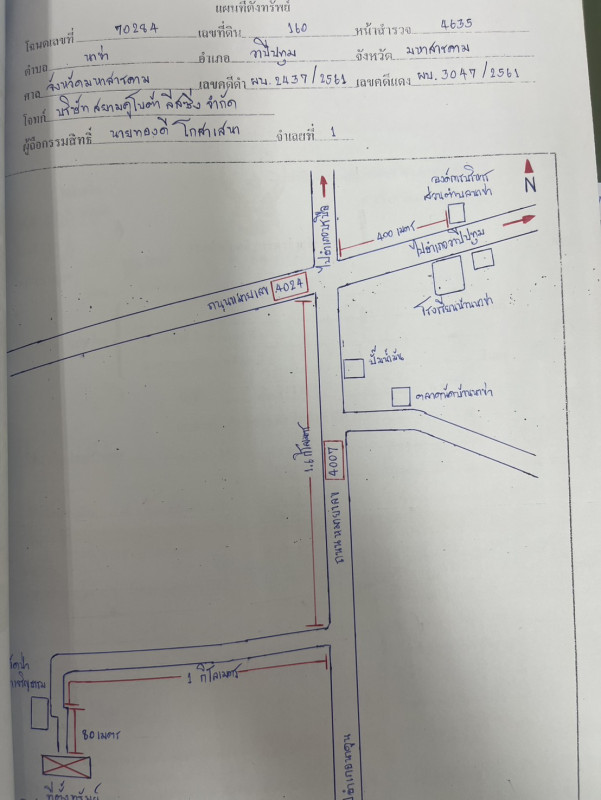 แผนที่ตั้งทรัพย์
โฉนดเลขที่ 70284 เลขที่ดิน 160 หน้าสำรวจ 4635
ตำบล นาข่า อำเภอ วาปีปทุม จังหวัด มหาสารคาม
ศาล จังหวัดมหาสารคาม เลขคดีดำ ผบ. 2437/2561 เลขคดีแดง ผบ. 3047/2561
โจทก์ บริษัท สยามคูโบต้า ลีสซิ่ง จำกัด
ผู้ถือกรรมสิทธิ์ นายทองดี โกสาเสนา จำเลยที่ 1
องค์การบริหาร
ส่วนตำบลนาข่า
N
400 เมตร
ไปอำเภอวาปีปทุม
ถนนหมายเลข 4024
โรงเรียนบ้านนาข่า
ปั๊มน้ำมัน
ตลาดนัดบ้านนาข่า
1.6 กิโลเมตร
4007
ถนนหมายเลข
1 กิโลเมตร
80 เมตร
ที่ตั้งทรัพย์